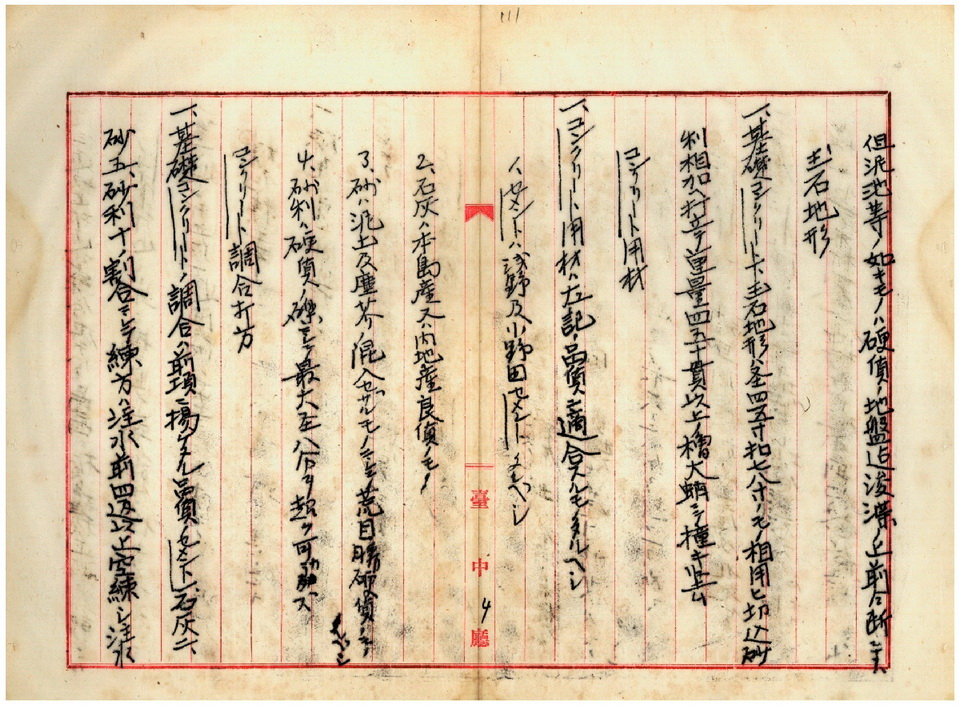 但泥池等ノ如キモノハ硬質ノ地盤迄浚渫ノ上前口断ニ
玉石地形
一、基礎コンクリート下玉石地形ハ全四五寸扣七八寸ノモノ相用ヒ切込砂
利相加ヘ打立テ重量四五十貫以上ノ櫓大蛸ニテ橦キ止ム
コンクリート用材
一、コンクリート用材ハ左記ノ品質ニ適合スルモノタルヘシ
1、セメントハ浅野及小野田セメントタルヘシ
2、石灰ハ本島産又ハ内地産良質ノモノ
3、砂ハ泥土及塵芥ノ混入セザルモノニシテ荒目 硬質ニシテ
キヘシ
4、砂利ハ硬質ノ礫ニシテ最大至八分ヲ超ク可ラス
コンクリート調合打方
一、基礎コンクリートノ調合ハ前項ニ掲ケタル品質ノセメント一、石灰二、
砂五、砂利十ノ割合ニシテ練方ハ注水前四返以上空練シ注水
臺中廳
4
111